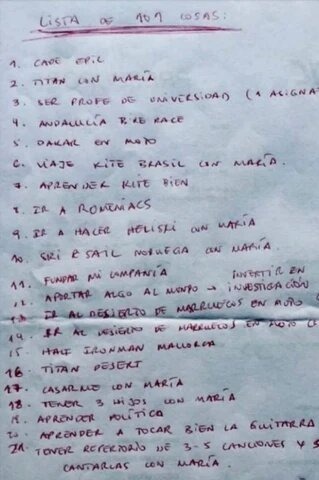 LISTA DE 101 COSAS:
1. CAPE EPIC
2. TITAN CON MARÍA
3. SER PROFE DE UNIVERSIDAD (1 ASIGNA
4. ANDALUCÍA BIKE RACE
5. DAKAR EN MOTO
6. VIAJE KITE BRASIL CON MARÍA.
7. APRENDER KITE BIEN
8. IR A ROMENIACS
9. IR A HACER HELISKI CON MARÍA
10. SKI & SAIL NORUEGA CON MARÍA.
11. FUNDAR MI COMPANÍA
12. APORTAR ALGO AL MUNDO → INVERTIR EN INVESTIGACIÓN
13. IR AL DESIERTO DE MARRUECOS EN MOTO
14. IR AL DESIERTO DE MARRUECOS EN MOTO
15. HALF IRONMAN MALLORCA
16. TITAN DESERT
17. CASARME CON MARÍA
18. TENER 3 HIJOS CON MARÍA
19. APRENDER POLÍTICA
20. APRENDER A TOCAR BIEN LA GUITARRA
21. TENER REPERTORIO DE 3-5 CANCIONES Y
CANTARLAS CON MARÍA.